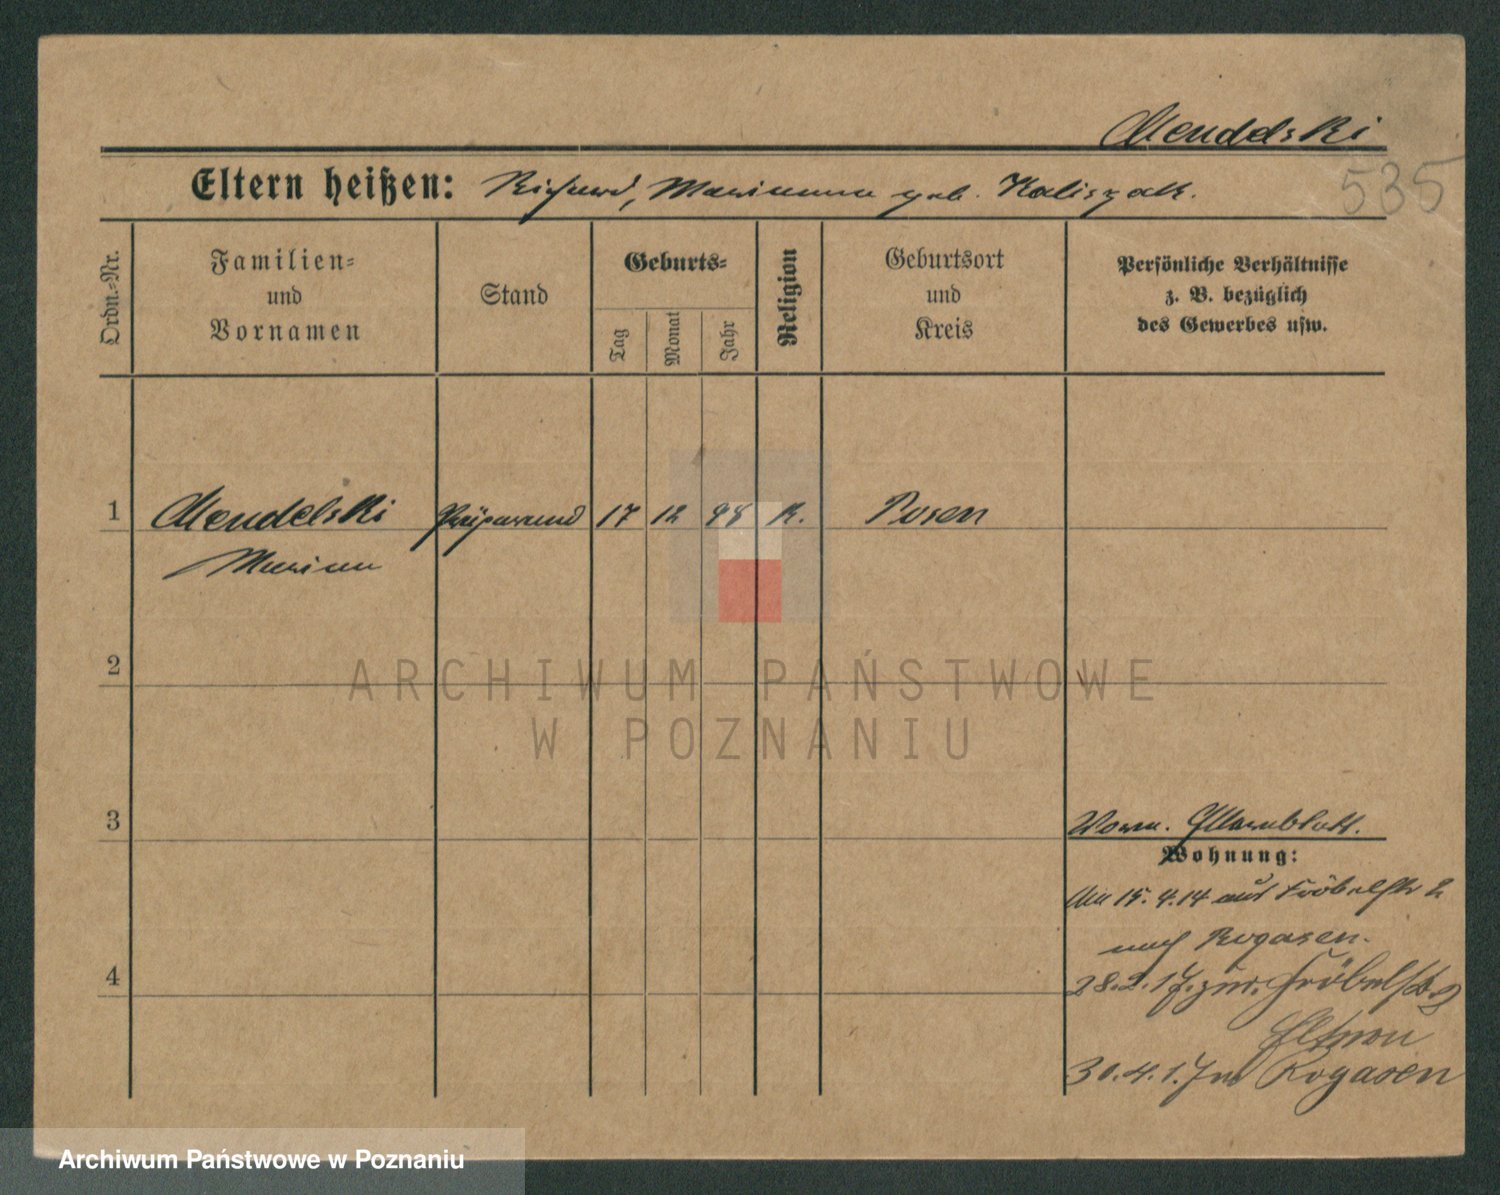 Mendelski
535
Eltern heißen: Richard, Marianna geb. Kaliszak.
Ordn.-Nr.
Familien-
und
Vornamen
Stand
Geburts-
Tag
Monat
Jahr
Religion
Geburtsort
und
Kreis
Persönliche Verhältnisse
z. B. bezüglich
des Gewerbes usw.
1 Mendelski Präparand 17 12 98 K. Posen
Marian
ARCHIWUM PAŃSTWOWE
W POZNANIU
2
3
Vorm. Elternblatt.
Wohnung:
Am 15.4.14 aus Fröbelstr 2
nach Rogasen.
4
28.2.17. zur. Fröbelstr 2
Eltern
30.4.17 n Rogasen
Archiwum Państwowe w Poznaniu